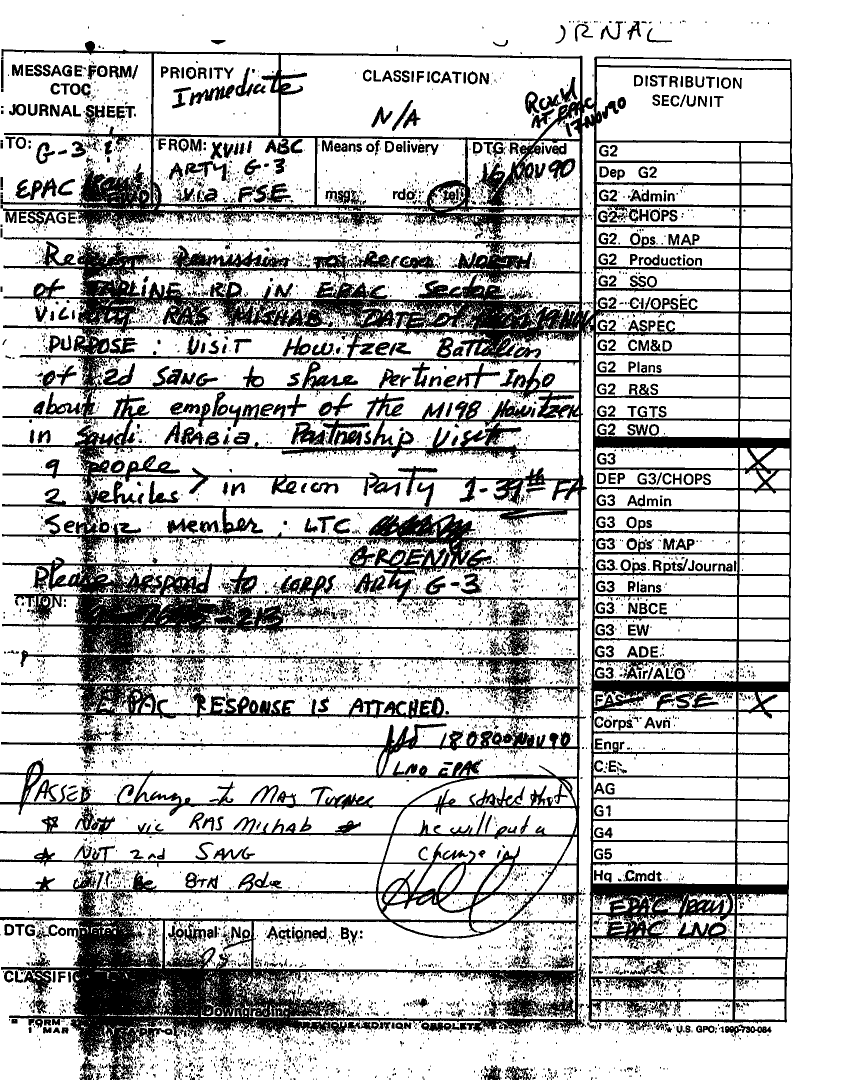 JRNAL
MESSAGE FORM/
CTOC
JOURNAL SHEET
PRIORITY
Immediate
CLASSIFICATION
N/A
Rcvd
AT EPAC
17 NOV 90
TO: G-3 &
EPAC
FROM: XVIII ABC
ARTY G-3
via FSE
Means of Delivery
msg rdo tel
DTG Received
16 NOV 90
MESSAGE
Request Permission to Recon NORTH
of TAPLINE RD IN EPAC Sector
Vicinity RAS MISHAB. DATE of 19 NOV
PURPOSE: VISIT Howitzer Battalion
of 2d SANG to share Pertinent Info
about the employment of the M198 Howitzer
in Saudi ARABIA. Partnership Visit
9 people
2 vehicles > in Recon Party 1-39th FA
Senior member: LTC
GROENING
Please respond to CORPS Arty G-3
CTION:
EPAC RESPONSE IS ATTACHED.
180800NOV90
LNO EPAC
PASSED Change to MAJ Turner
* Not vic RAS Mishab *
* NOT 2nd SANG
* will be 8TH Bde
He stated that
he will put a
change in
DTG Completed
Journal No
Actioned By:
CLASSIFICATION
Downgrading
FORM
1 MAR
PREVIOUS EDITION OBSOLETE
DISTRIBUTION
SEC/UNIT
G2
Dep G2
G2 Admin
G2 CHOPS
G2 Ops MAP
G2 Production
G2 SSO
G2 CI/OPSEC
G2 ASPEC
G2 CM&D
G2 Plans
G2 R&S
G2 TGTS
G2 SWO
G3 X
DEP G3/CHOPS X
G3 Admin
G3 Ops
G3 Ops MAP
G3 Ops Rpts/Journal
G3 Plans
G3 NBCE
G3 EW
G3 ADE
G3 Air/ALO
FAS FSE X
Corps Avn
Engr
C.E.
AG
G1
G4
G5
Hq Cmdt
EPAC
EPAC LNO
U.S. GPO: 1990-730-084